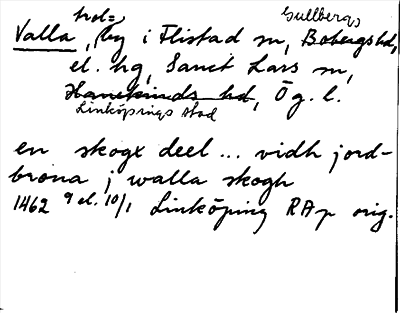 hd=
Gullbergs
Valla, by i Flistad sn, Bobergs hd,
el. hg, Sanct Lars sn,
Hanekinds hd, Ög. l.
Linköpings stad
en skogx deel ... vidh jord-
brona j walla skogh
1462 9 el. 10/1 Linköping RAp orig.